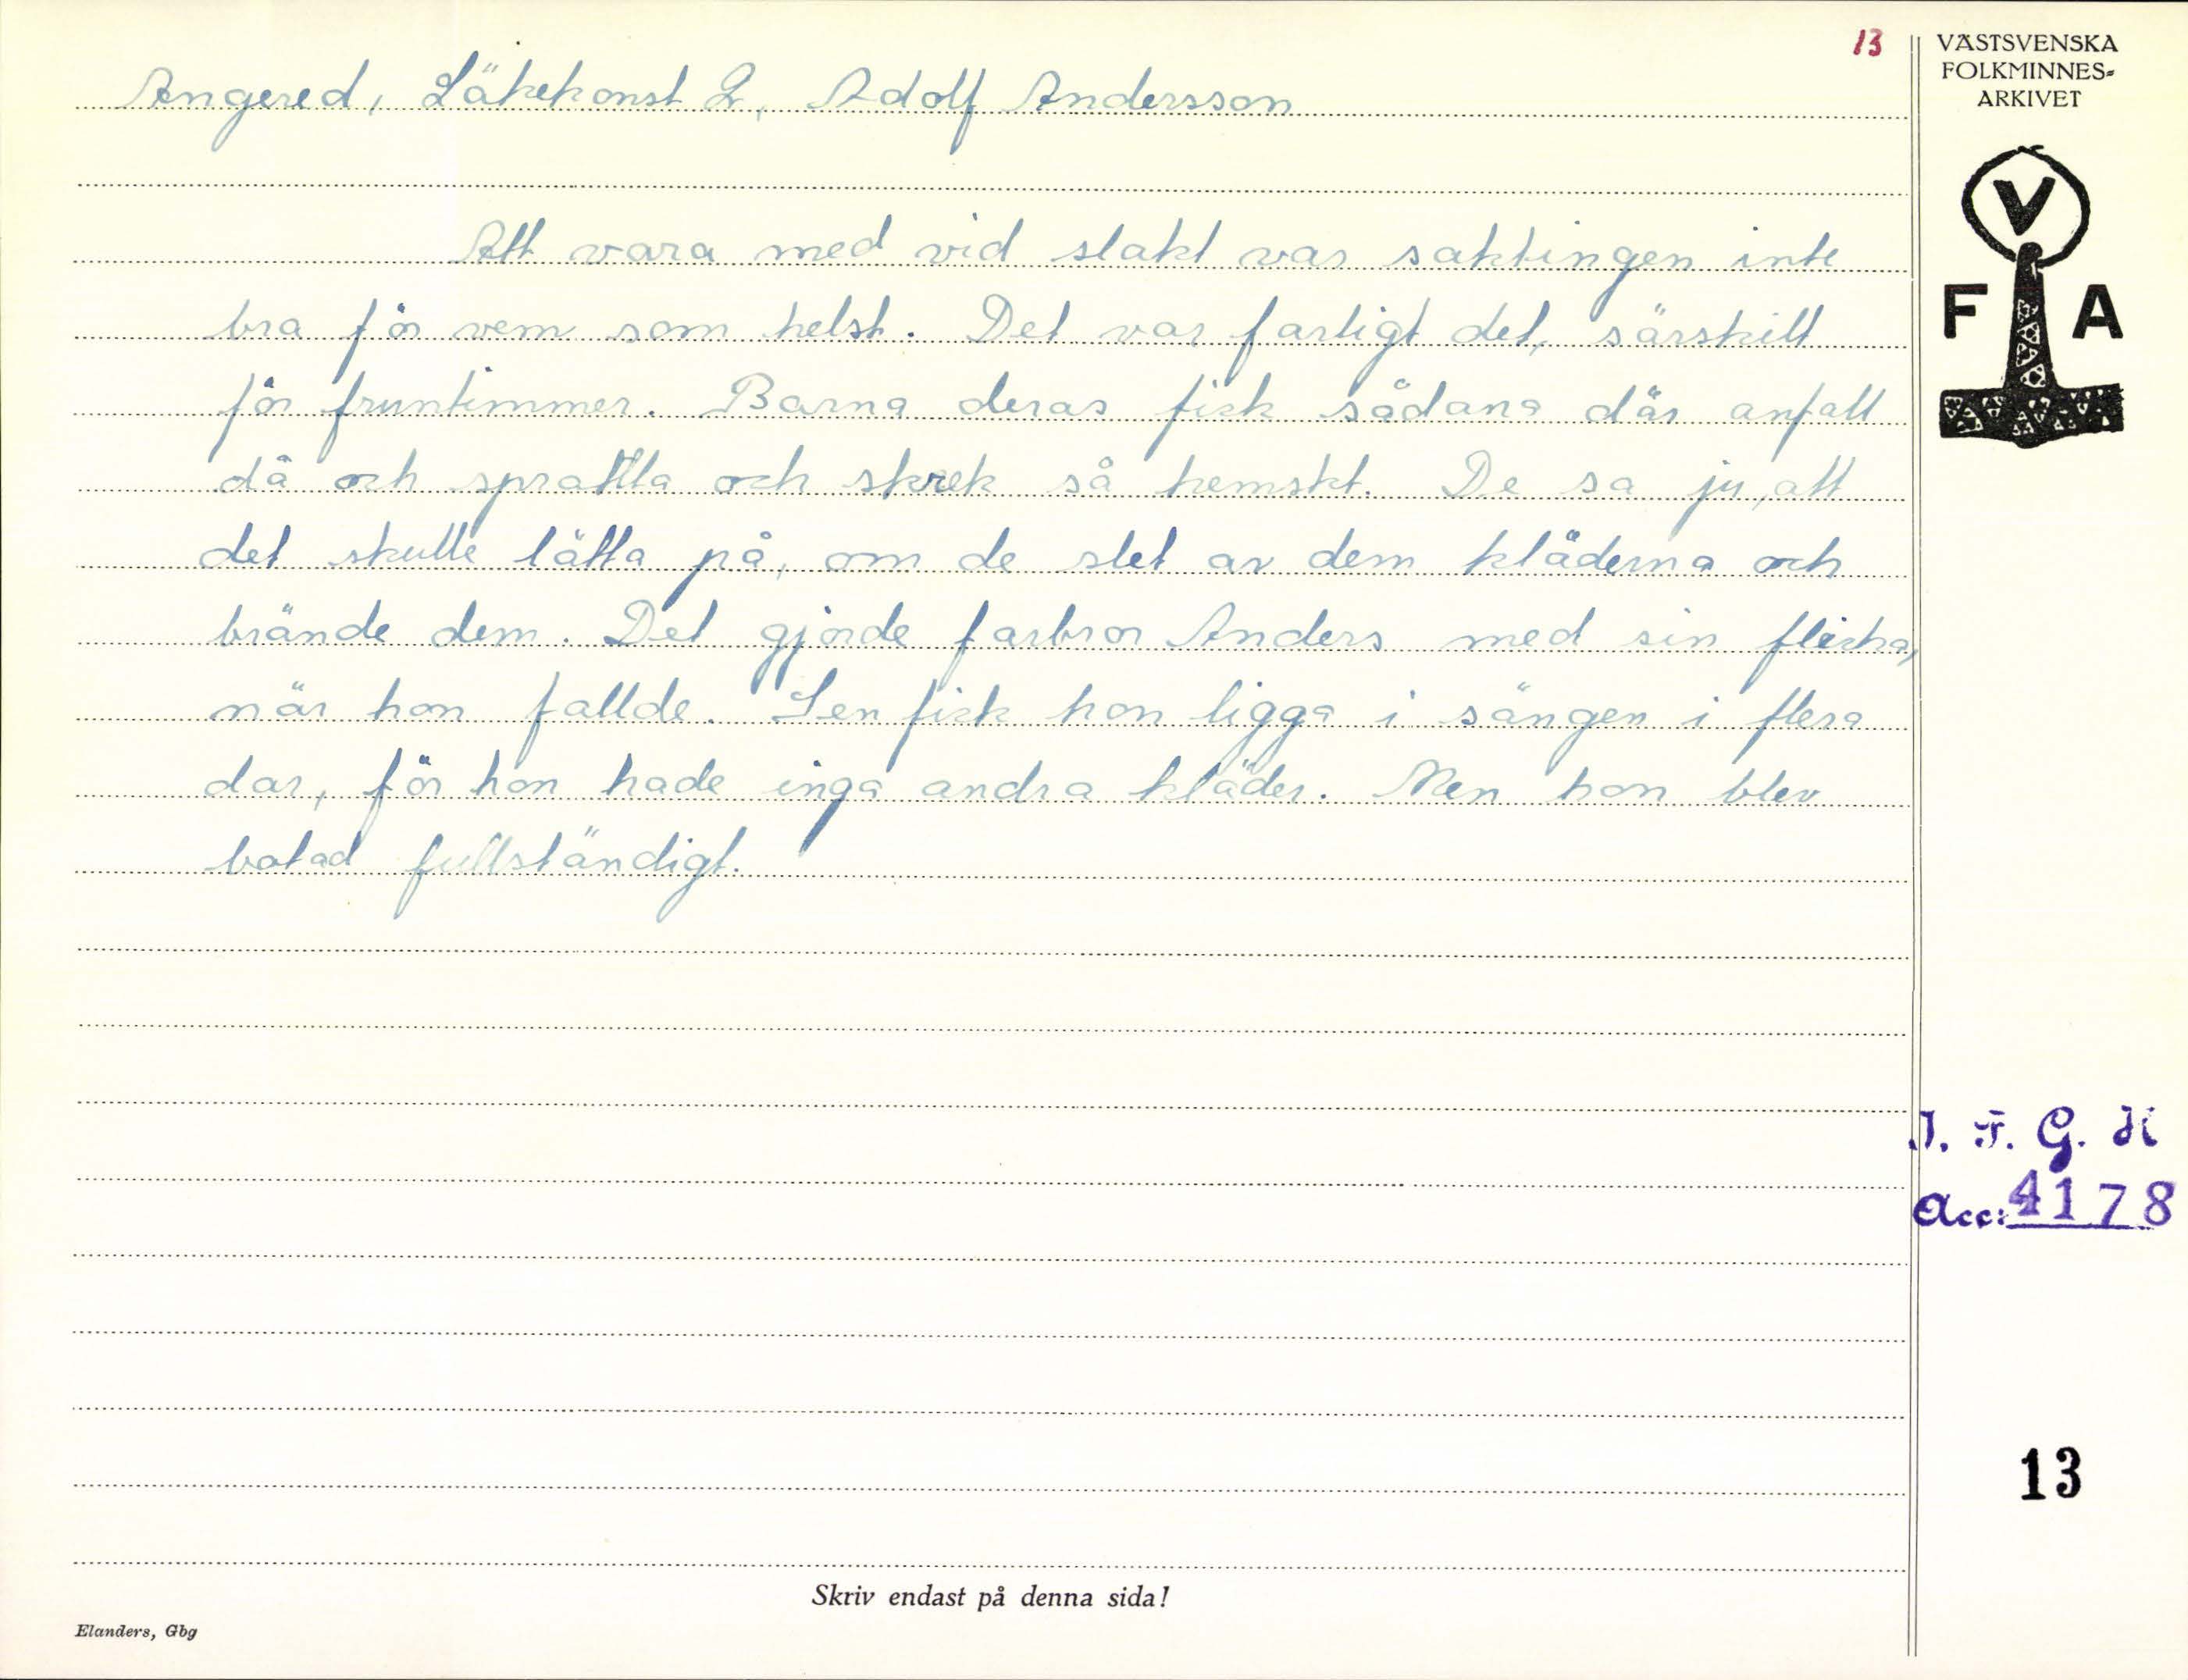 13
VÄSTSVENSKA
FOLKMINNES-
ARKIVET
V
F A
Angered, Läkekonst 2, Adolf Andersson
Att vara med vid slakt var saktingen inte
bra för vem som helst. Det var farligt det, särskilt
för fruntimmer. Barna deras fick sådana där anfall
då och sprattla och skrek så hemskt. De sa ju, att
det skulle lätta på, om de slet av dem kläderna och
brände dem. Det gjorde farbror Anders med sin flicka,
när hon fallde. Sen fick hon ligga i sängen i flera
dar, för hon hade inga andra kläder. Men hon blev
botad fullständigt.
I. F. G. H
Acc: 4178
13
Skriv endast på denna sida!
Elanders, Gbg